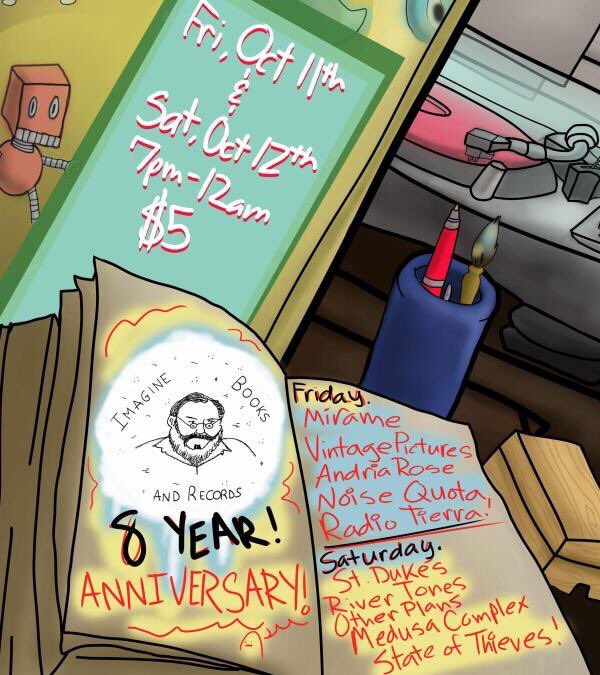 Fri, Oct 11th
&
Sat, Oct 12th
7pm-12am
$5
IMAGINE BOOKS
AND RECORDS
8 YEAR!
ANNIVERSARY!
Friday.
Mirame
Vintage Pictures
Andria Rose
Noise Quota,
Radio Tierra.
Saturday.
St. Dukes
River Jones
Other Plans
Medusa Complex
State of Thieves!